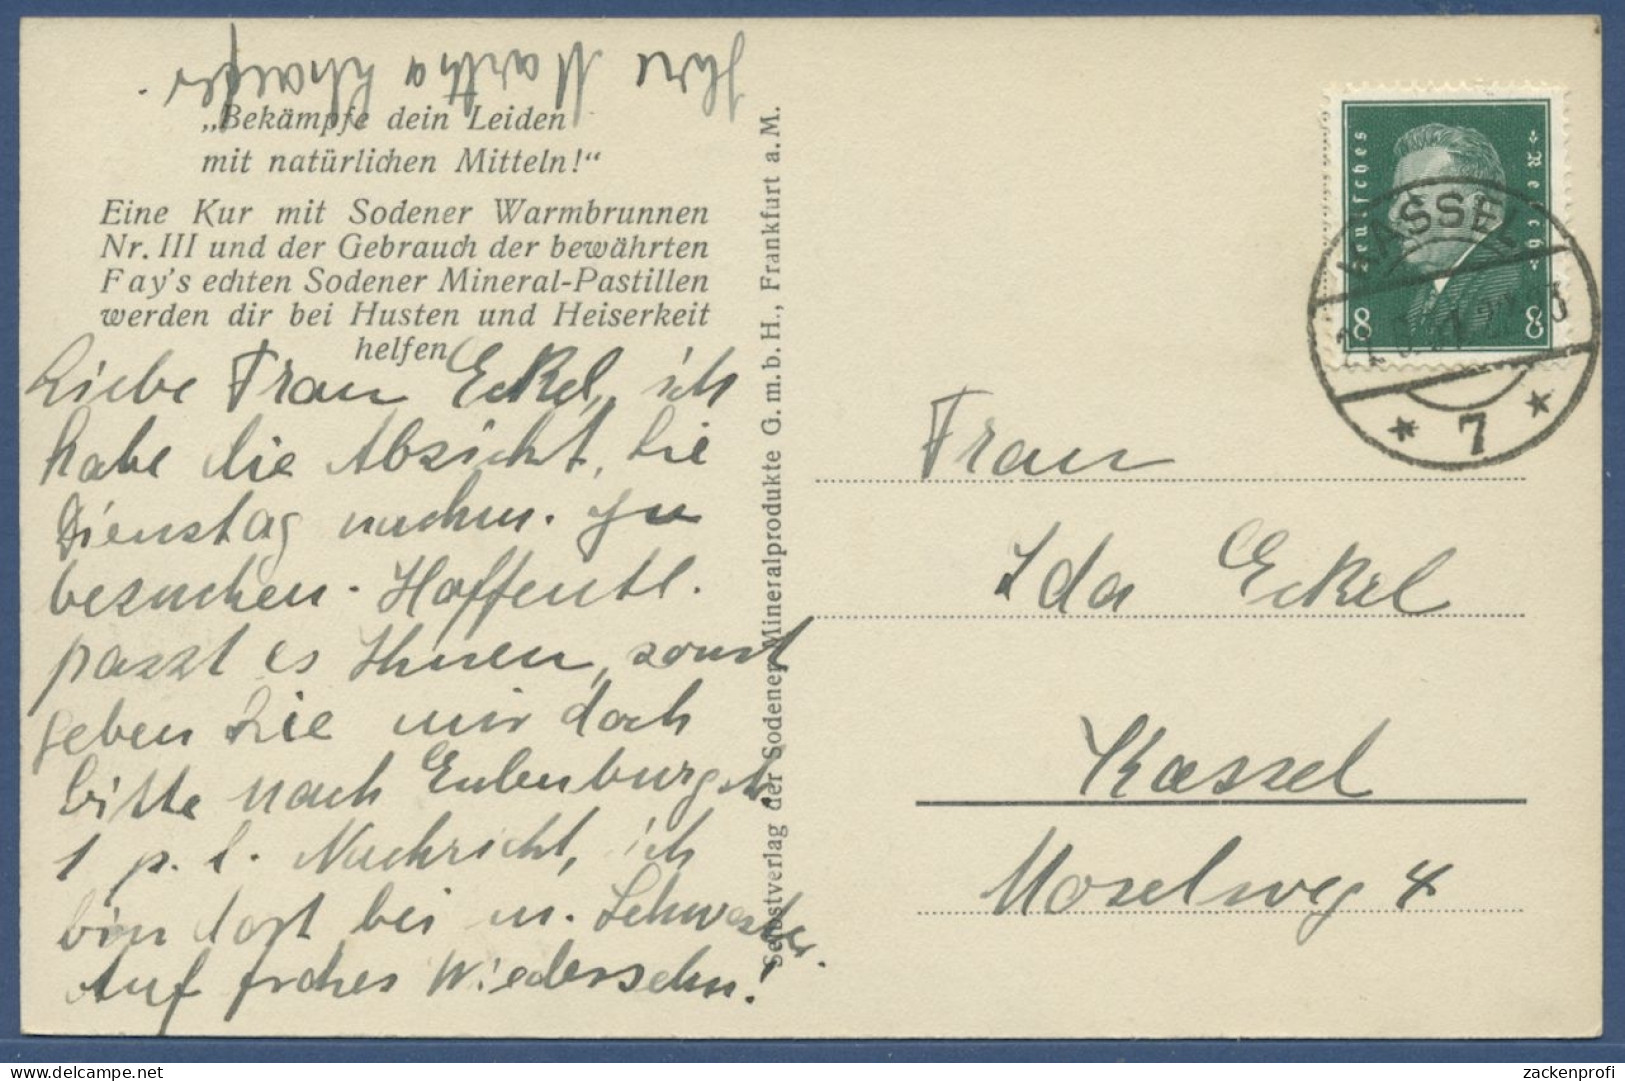 Ihre Martha Schaefer.
„Bekämpfe dein Leiden
mit natürlichen Mitteln!“
Eine Kur mit Sodener Warmbrunnen
Nr. III und der Gebrauch der bewährten
Fay's echten Sodener Mineral-Pastillen
werden dir bei Husten und Heiserkeit
helfen
Liebe Frau Eckel, ich
habe die Absicht, Sie
Dienstag nachm. zu
besuchen. Hoffentl.
passt es Ihnen, sonst
geben Sie mir doch
bitte nach Eulenburgstr.
1 p. l. Nachricht, ich
bin dort bei m. Schwester.
Auf frohes Wiedersehn!
Selbstverlag der Sodener Mineralprodukte G. m. b. H., Frankfurt a. M.
Deutsches Reich
8 8
KASSEL
* 7 *
Frau
Ida Eckel
Kassel
Moselweg 4
delcampe.net
zackenprofi